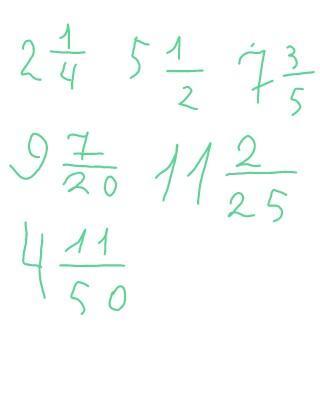 2 1/4 5 1/2 7 3/5
9 7/20 11 2/25
4 11/50